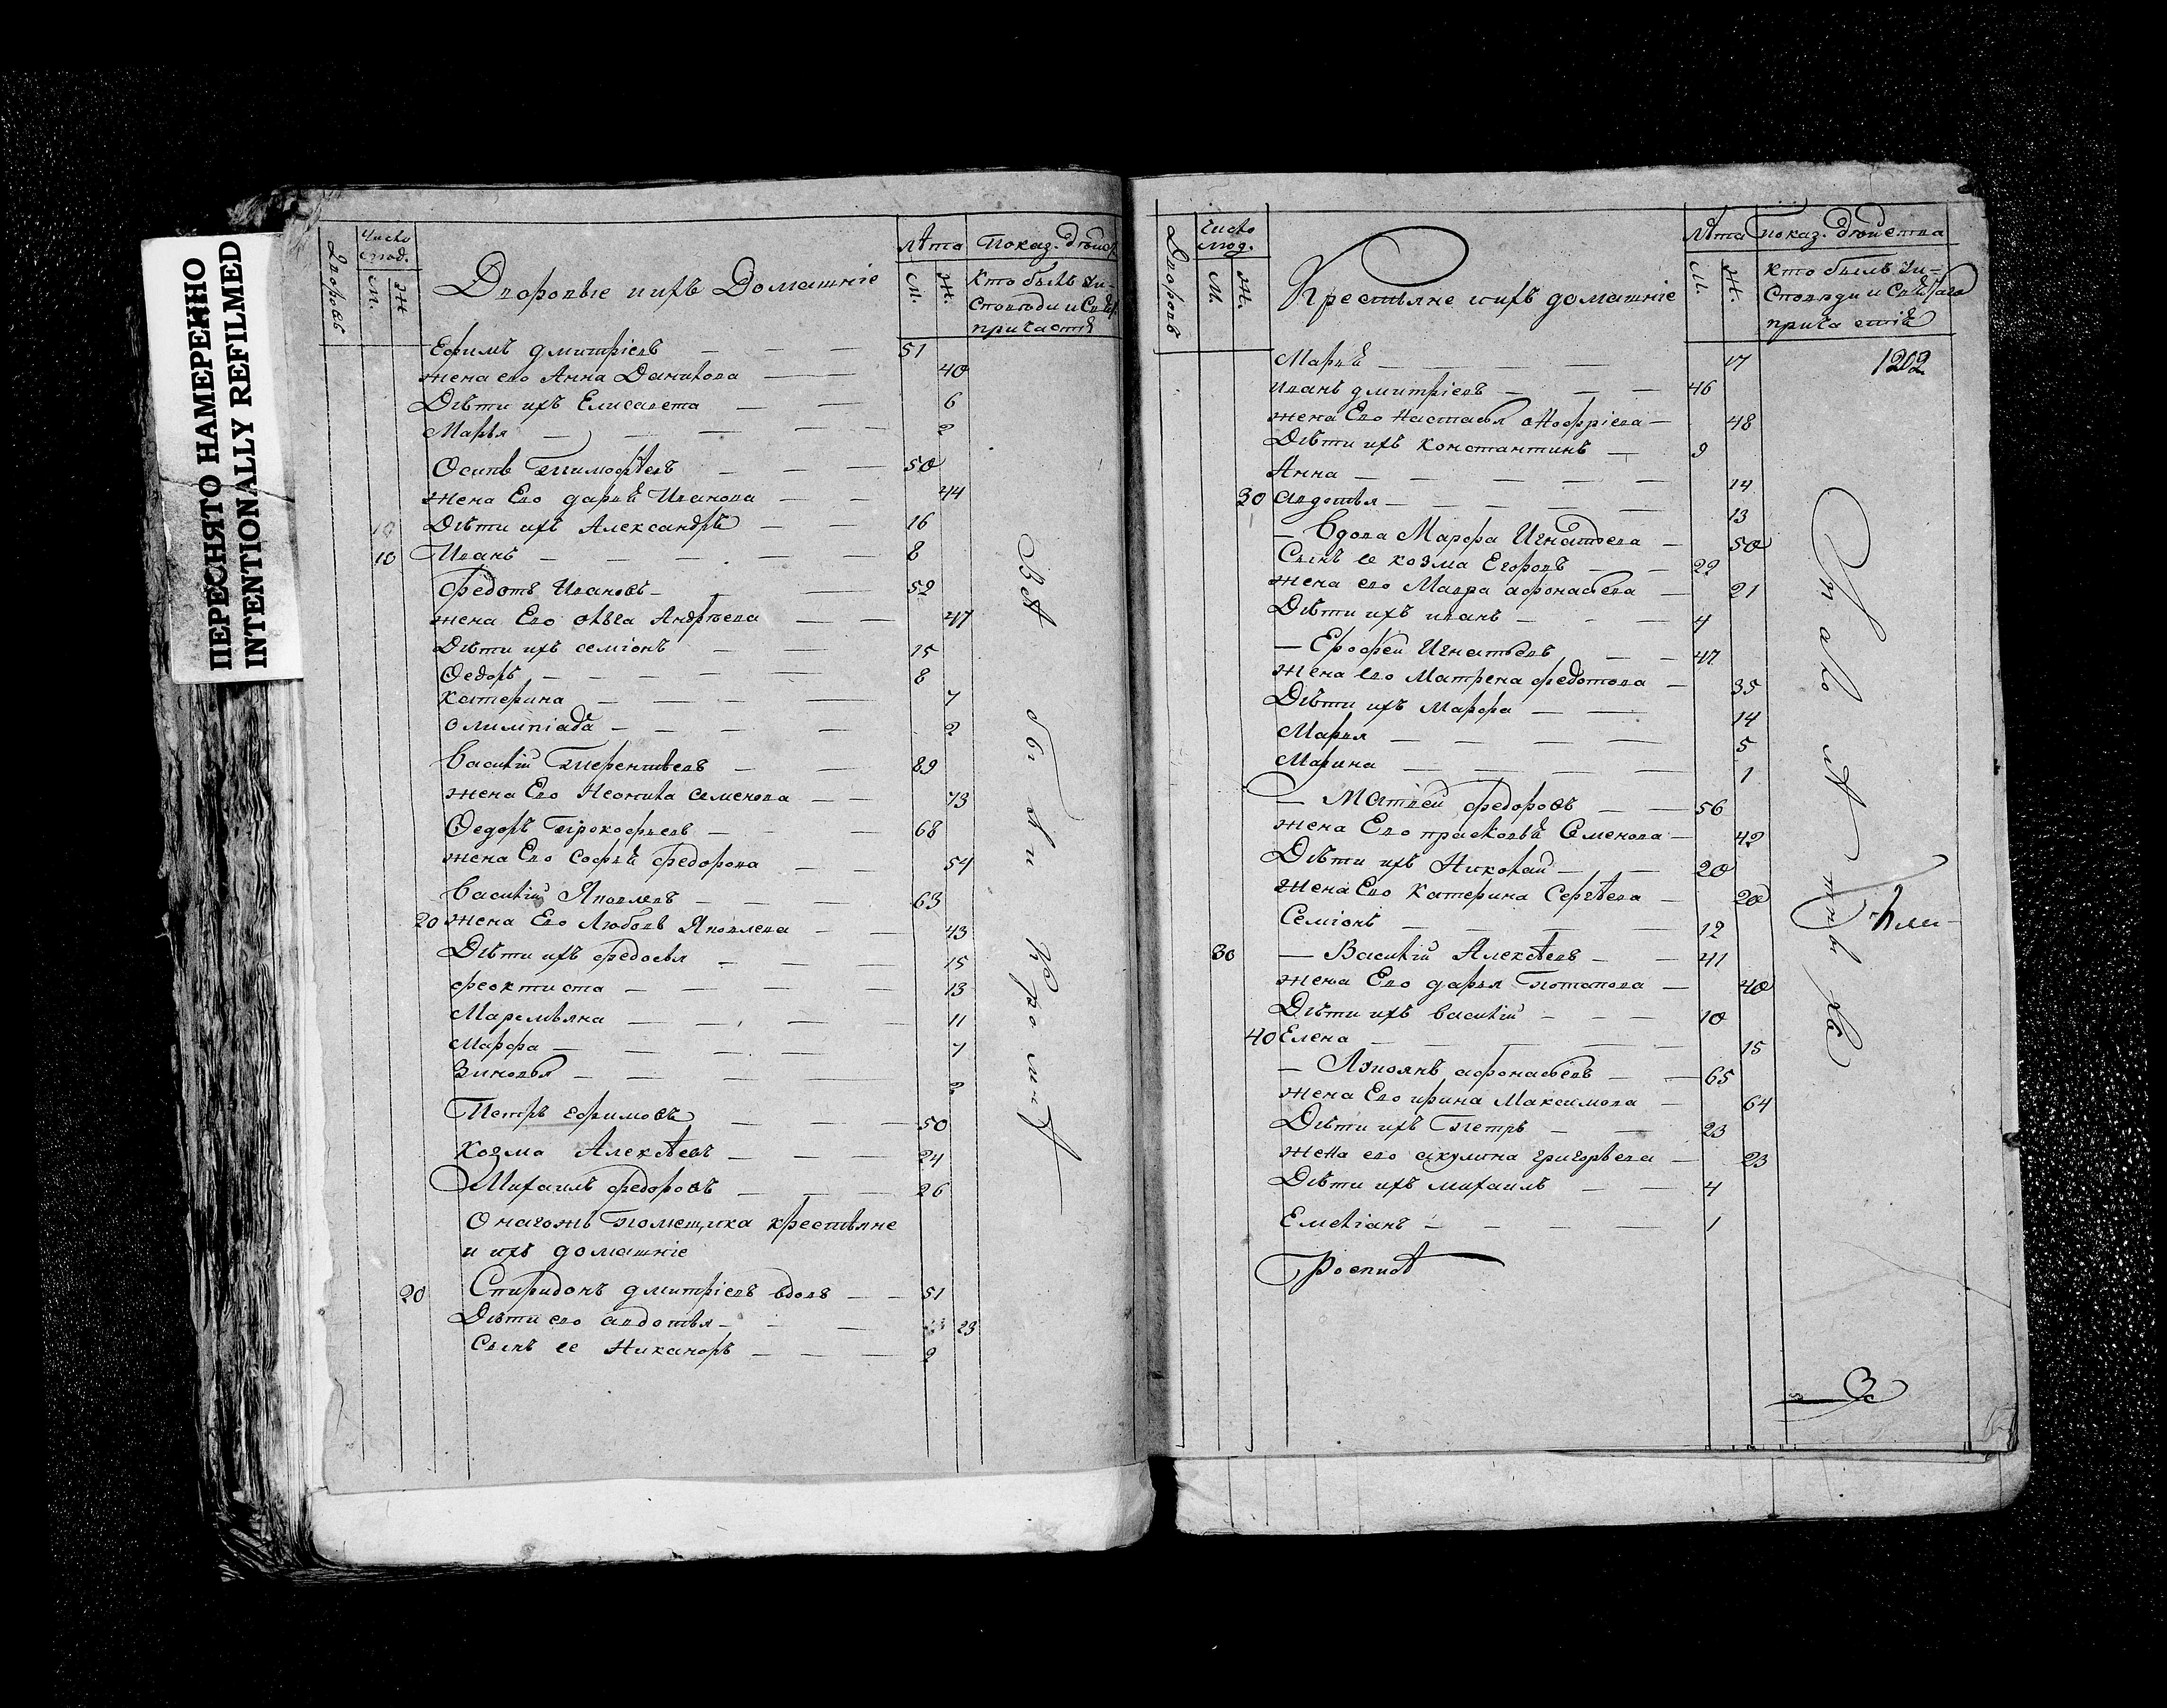 ПЕРЕСНЯТО НАМЕРЕННО
INTENTIONALLY REFILMED
Дворовъ
Число
люд.
М.
Ж
Дворовые и ихъ Домашніе
лѣта
М.
Ж.
Показ. дѣйст
Кто былъ у и-
споведи и Св.
причастія
Ефимъ дмитріевъ — — — 51
жена его Анна Данилова — — 40
Дѣти ихъ Елисавета — — 6
Марья — — — — 2
Осипъ Тимофѣевъ — — — 50
жена Его дарья Иванова — — 44
Дѣти ихъ Александръ — — 16
10 Иванъ — — — — 8
Федотъ Ивановъ — — 52
жена Его Андрѣева — — 47
Дѣти ихъ семіонъ — — 15
Ѳедоръ — — — — — 8
катерина — — — — 7
олимпіада — — — — 2
Василій Терентьевъ — — 89
жена Его Неонила семенова — — 73
Ѳедоръ Прокофьевъ — — 68
жена Его софья федорова — — 54
Василій Яковлевъ — — — 63
20 жена Его Любовь Яковлева — — 43
Дѣти ихъ федосья — — — 15
феоктиста — — — — 13
Маремьяна — — — — 11
марфа — — — — 7
Зиновья — — — — 2
Петръ ефимовъ — — — 50
козма Алексѣевъ — — — 24
Михаилъ федоровъ — — — 26
Онагожъ помещика крестьяне
и ихъ домашніе
20 Спиридонъ дмитріевъ вдовъ — — 51
Дѣти его авдотья — — 23
Сынъ ее Никаноръ — — — 2
Всѣ были
Дворовъ
Число
люд.
М.
Ж.
Крестьяне и ихъ домашніе
Лѣта
М.
Ж.
показ. дѣйства
кто былъ у и-
споведи и Св.
причастія
1202
Марья — — — — 17
иванъ дмитріевъ — — — 46
жена Его Настасья аНофріева — 48
Дѣти ихъ константинъ — 9
Анна — — — — — 14
30 авдотья — — — — — 13
— Вдова Марфа Игнатьева — 50
Сынъ ее козма Егоровъ — — 22
жена его Мавра афонасьева — 21
Дѣти ихъ иванъ — — — 4
— Ерофеи Игнатьевъ — — 47
жена его Матрена федотова — 35
Дѣти ихъ Марфа — — 14
Марья — — — — 5
Марина — — — — 1
— Матвеи федоровъ — — 56
жена Его прасковья Семенова — 42
Дѣти ихъ Николаи — — 20
жена Его катерина Сергѣева — 20
Семіонъ — — — — 12
30 — Василіи Алексѣевъ — — 41
жена Его дарья Потапова — 40
Дѣти ихъ василіи — — — 10
40 Елена — — — — — 15
— афонасьевъ — — 65
жена Его ирина Максимова — 64
Дѣти ихъ Петръ — — 23
жена его акулина григорьева — 23
Дѣти ихъ михаилъ — — 4
Емеліанъ — — — — 1